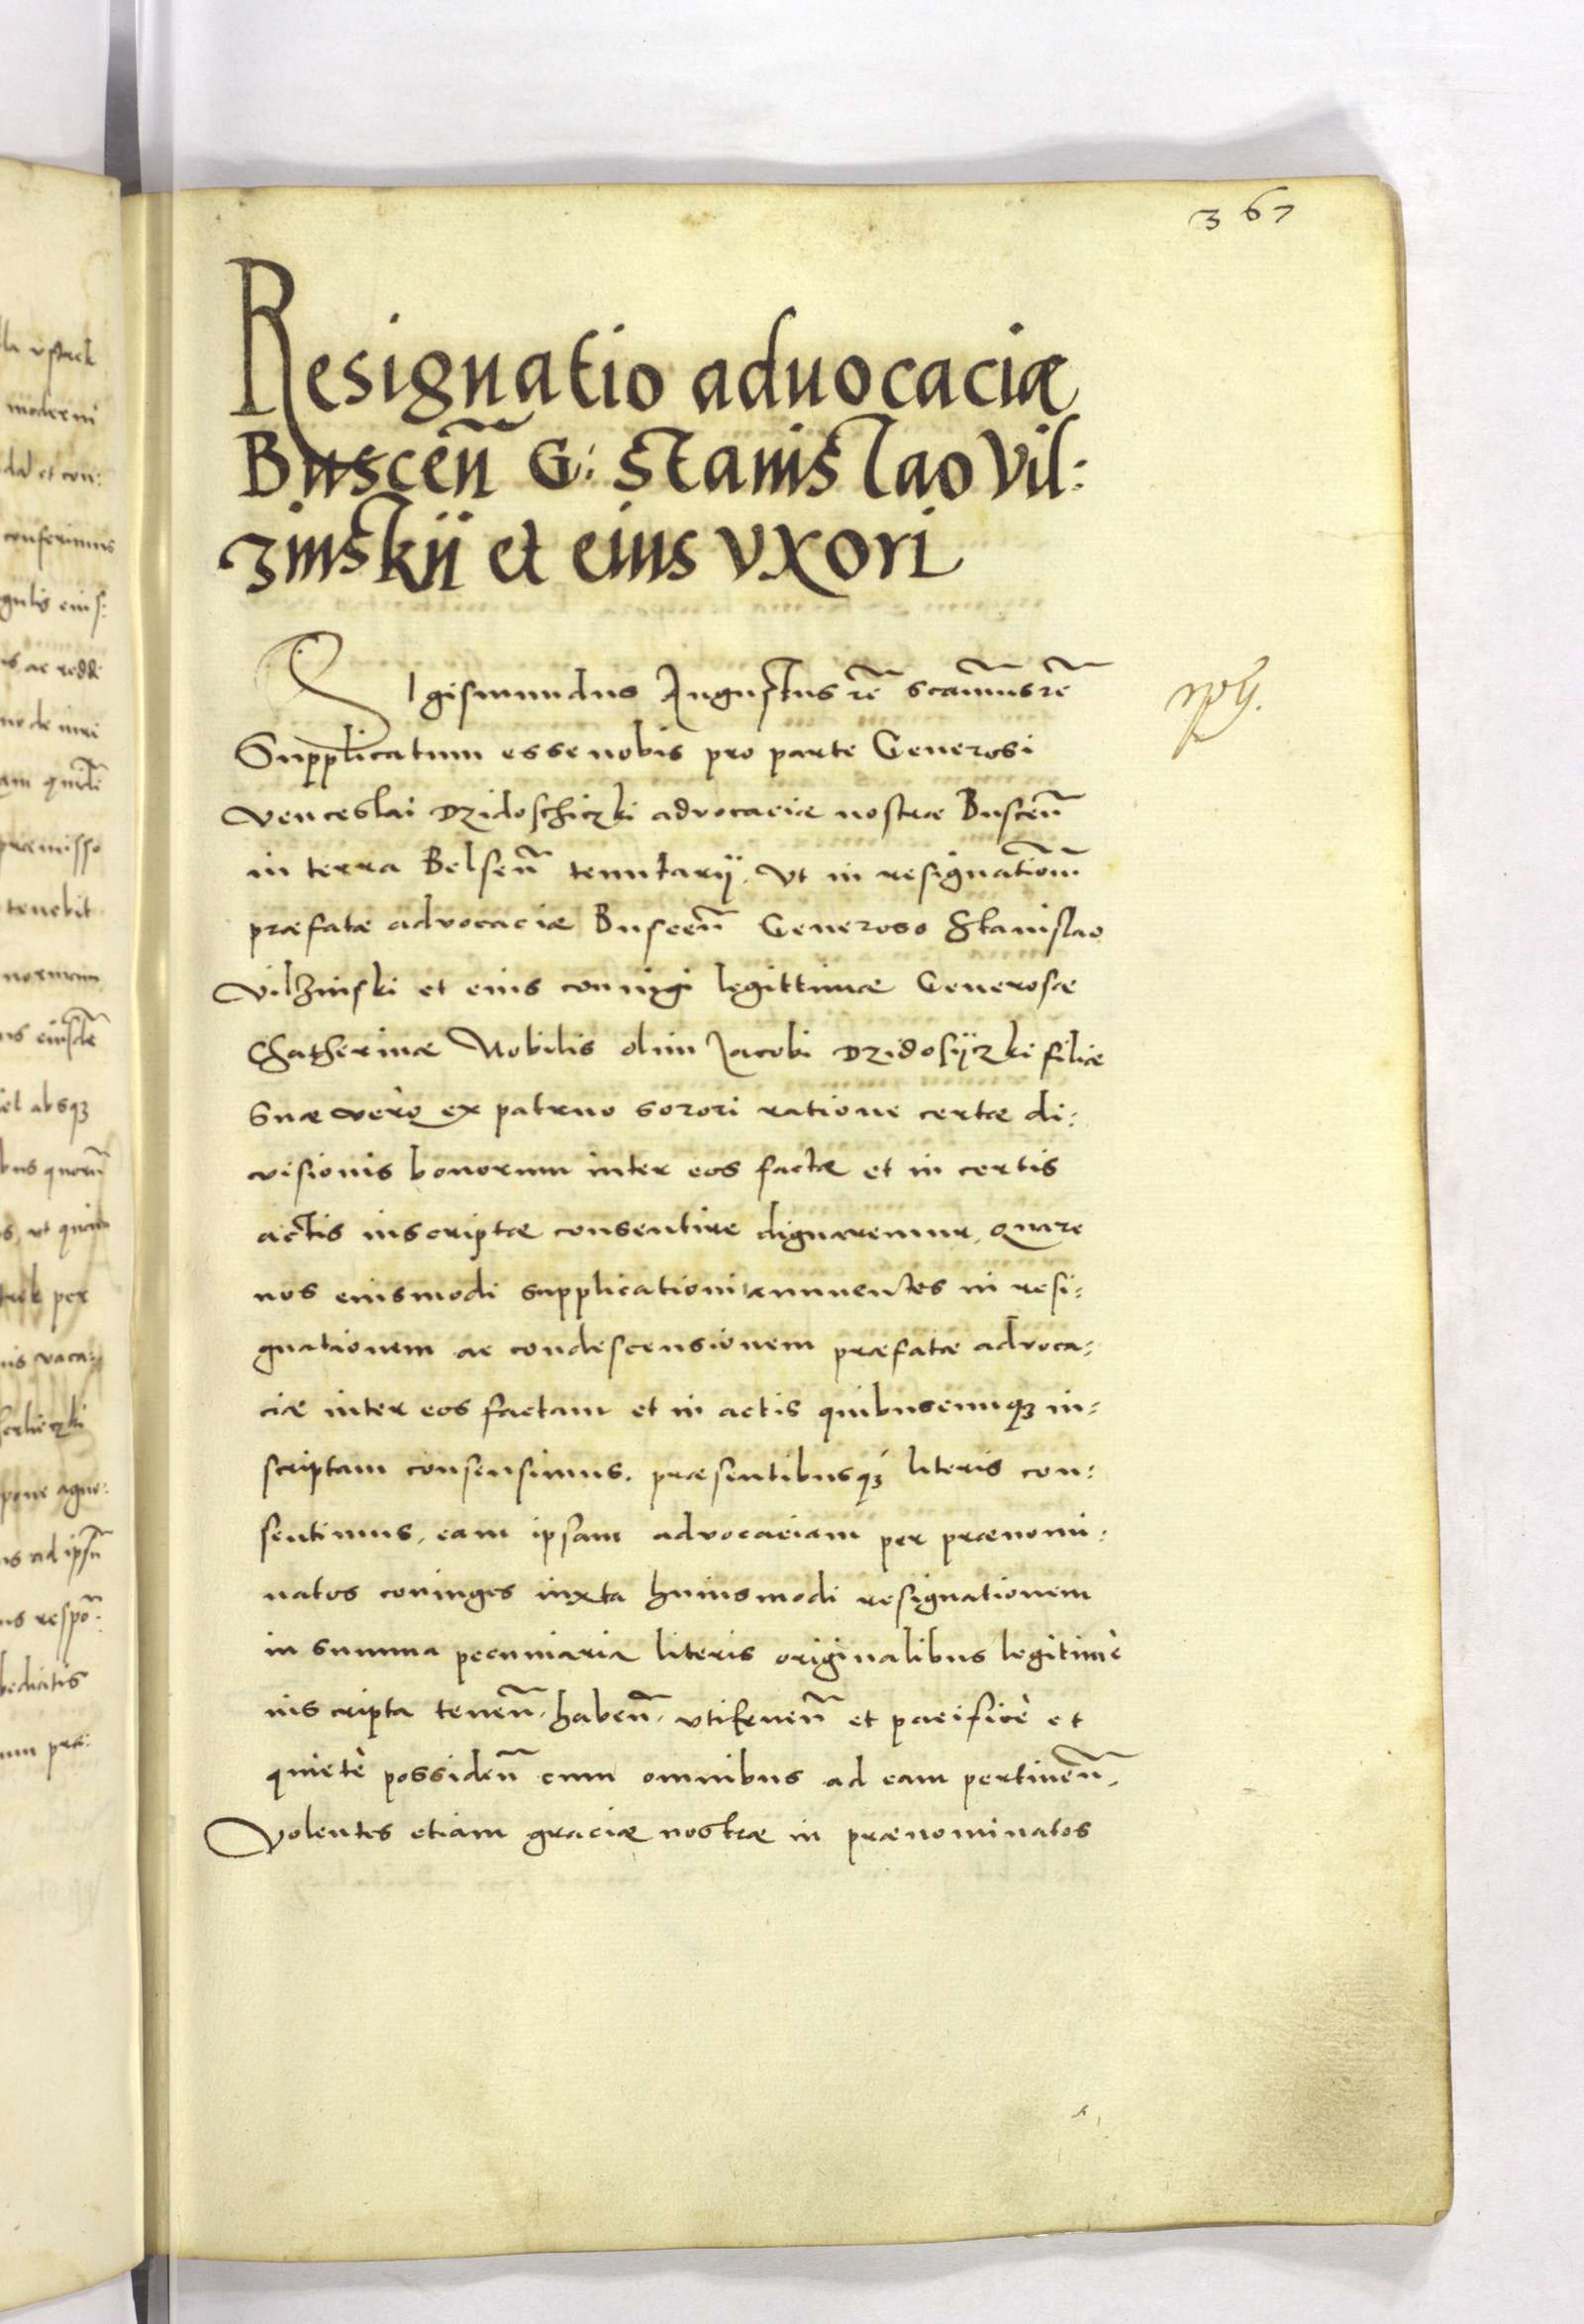 367
Resignatio aduocaciæ
Buscen̄ G: Stanislao Vil:
zinskii et eius vxori
SIgismundus Augustus rẽ scam̃usrẽ
Supplicatum esse nobis pro parte Generosi
Venceslai Dzidoschiczki advocaciæ nostræ Buscen̄
in terra Belsen̄ tenutarÿ. Vt in resignationm̃
præfatæ advocaciæ Buscen̄ Generoso Stanislao
Vilzinski et eius coniugi legittimæ Generosæ
Chatherinæ Nobilis olim Jacobi Dzidosÿczki filiæ
Suæ verò ex patruo sorori ratione certæ di:
visionis bonorum inter eos factæ et in certis
actis inscriptæ consentire dignaremur, Quare
nos eiusmodi supplicationi annuentes in resi:
gnationem ac condescensionem præfatæ advoca:
ciæ inter eos factam et in actis quibuscumqȝ in:
scriptam consensimus. præsentibusqȝ literis con:
sentimus, eam ipsam advocaciam per prænomi:
natos coniuges iuxta huiusmodi resignationem
in summa pecuniaria literis originalibus legitimè
inscripta tenen̄. haben̄. vtifruen̄ et pacificè et
quietè possiden̄ cum omnibus ad eam pertinen̄.
Volentes etiam graciæ nostræ in prænominatos